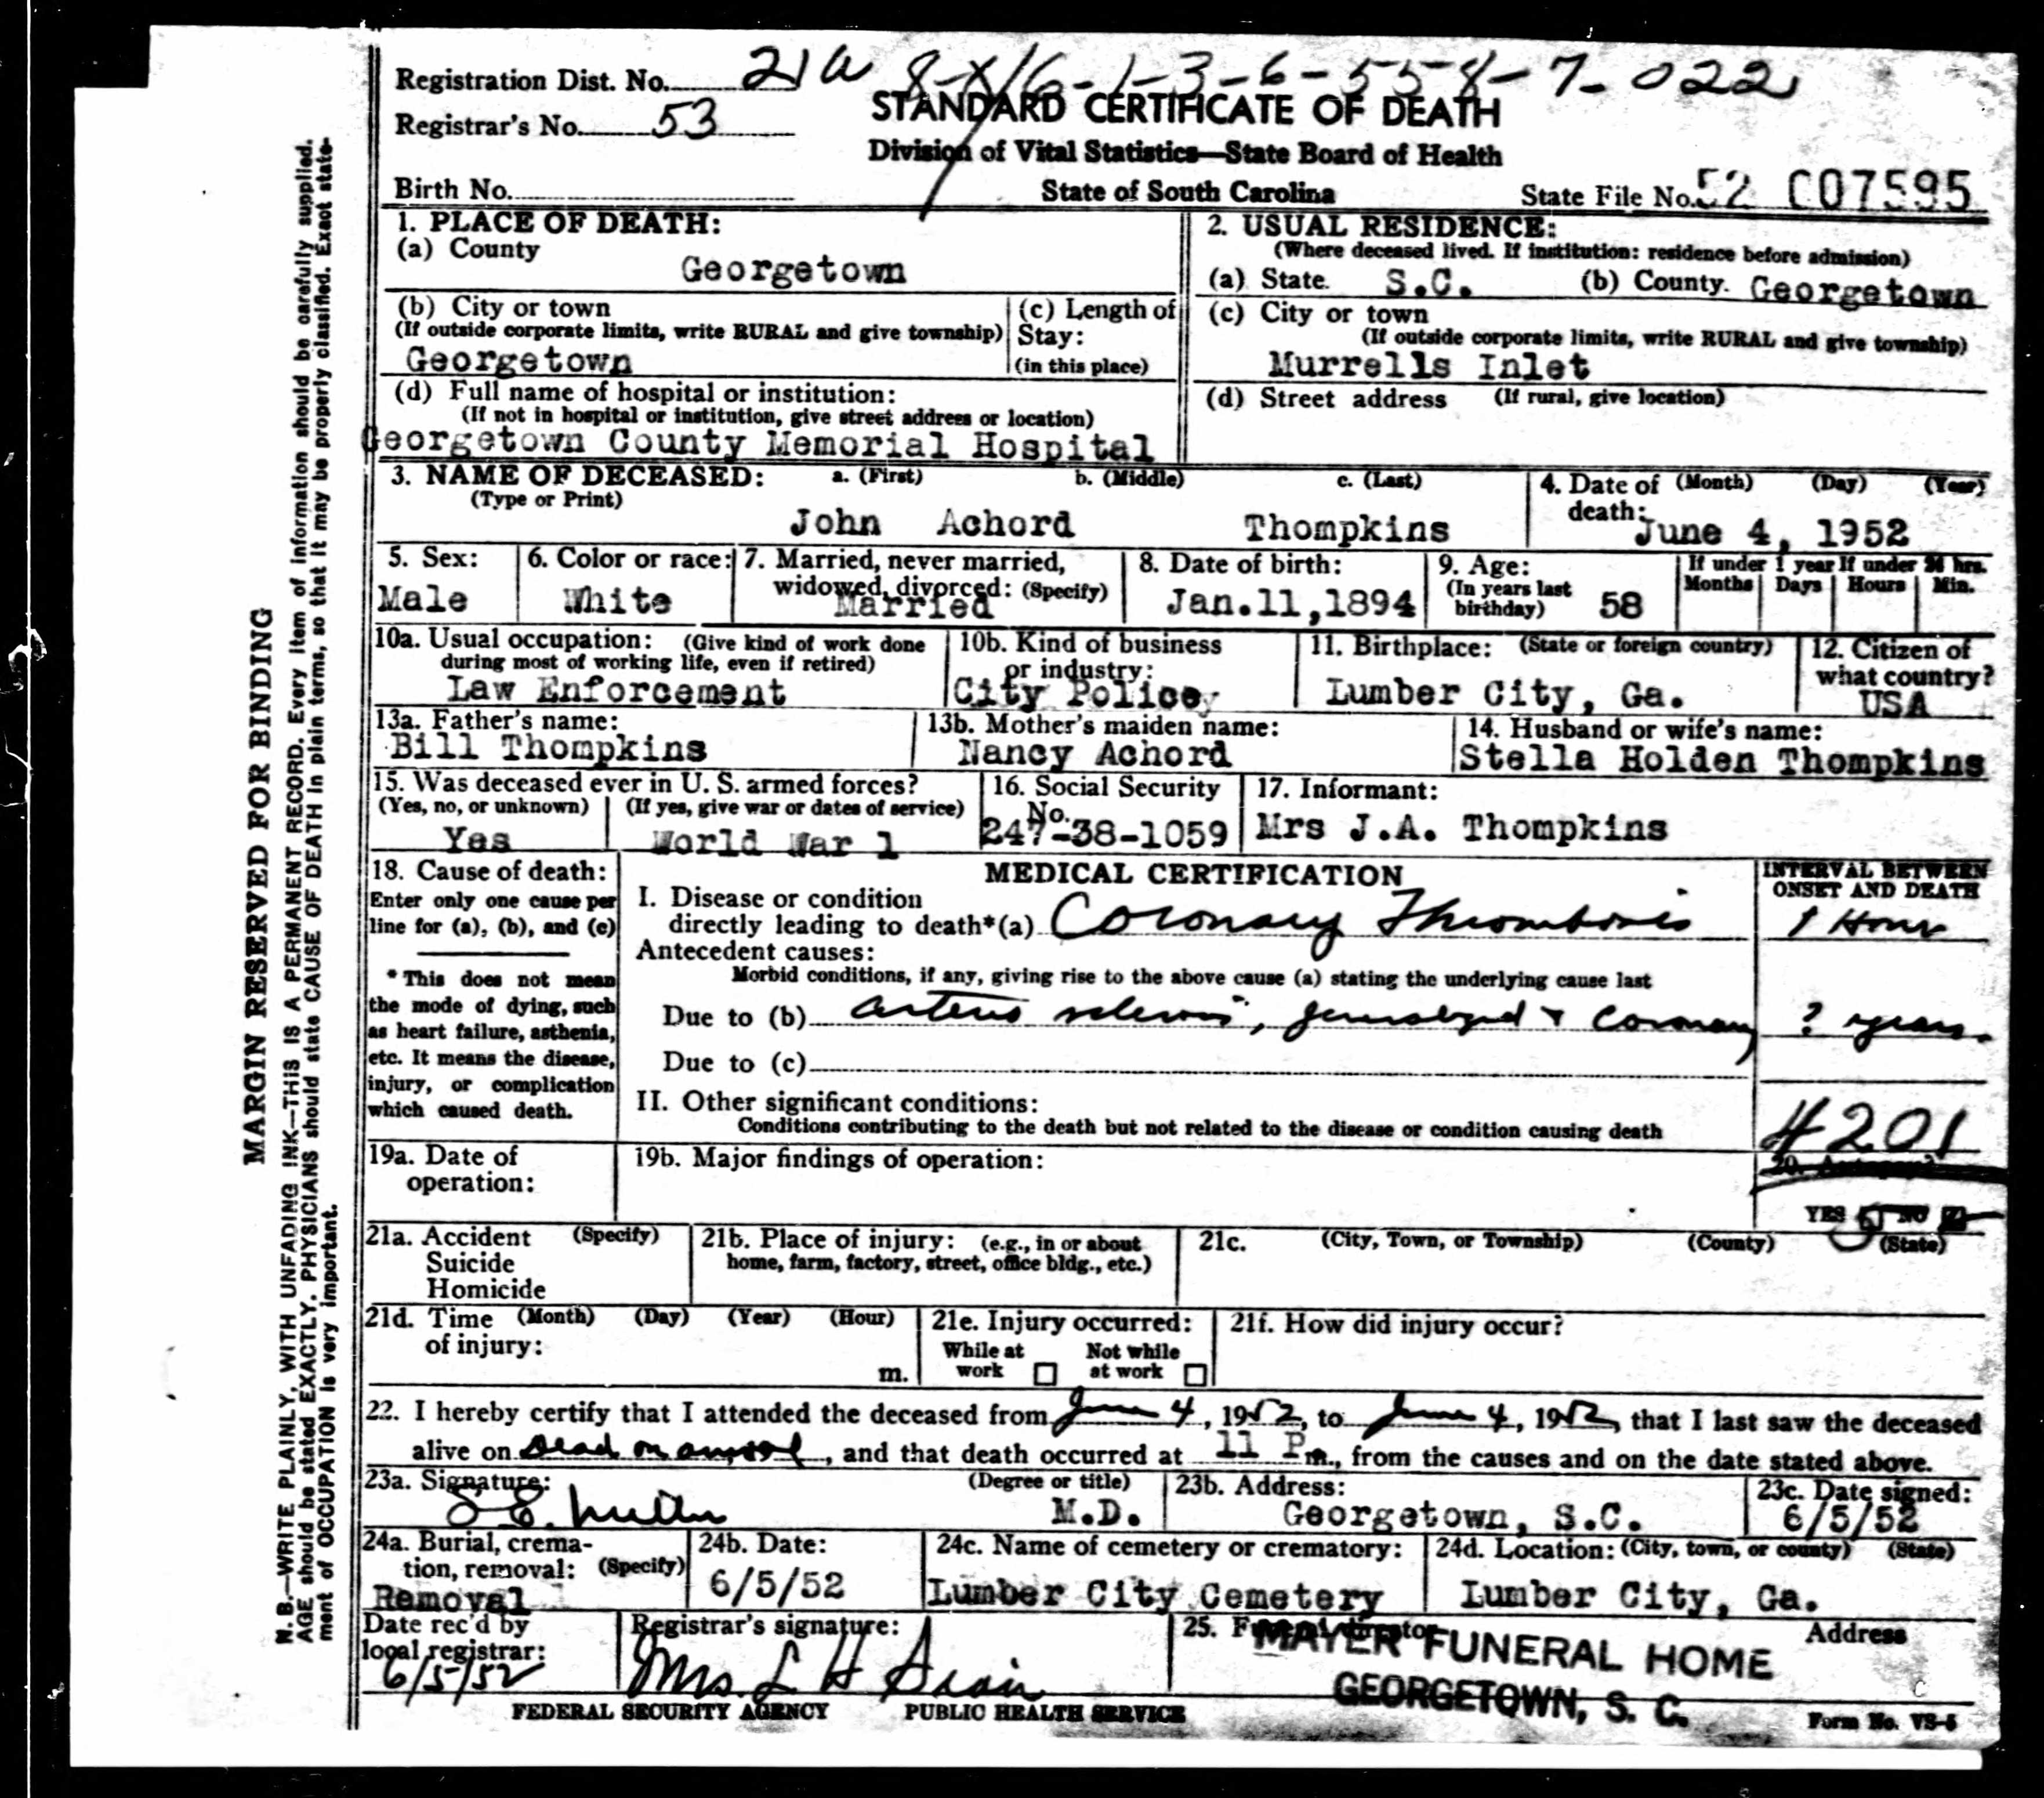 Registration Dist. No. 21a 8-X16-1-3-6-558-7-022
STANDARD CERTIFICATE OF DEATH
Registrar's No. 53
Division of Vital Statistics—State Board of Health
Birth No.
State of South Carolina
State File No. 52 007595
1. PLACE OF DEATH:
(a) County
Georgetown
(b) City or town
(If outside corporate limits, write RURAL and give township)
Georgetown
(c) Length of
Stay:
(in this place)
(d) Full name of hospital or institution:
(If not in hospital or institution, give street address or location)
Georgetown County Memorial Hospital
2. USUAL RESIDENCE:
(Where deceased lived. If institution: residence before admission)
(a) State. S.C. (b) County. Georgetown
(c) City or town
(If outside corporate limits, write RURAL and give township)
Murrells Inlet
(d) Street address (If rural, give location)
3. NAME OF DECEASED: a. (First) b. (Middle) c. (Last)
(Type or Print)
John Achord Thompkins
4. Date of (Month) (Day) (Year)
death:
June 4, 1952
5. Sex:
Male
6. Color or race:
White
7. Married, never married,
widowed, divorced: (Specify)
Married
8. Date of birth:
Jan.11,1894
9. Age:
(In years last
birthday) 58
If under 1 year If under 24 hrs.
Months Days Hours Min.
10a. Usual occupation: (Give kind of work done
during most of working life, even if retired)
Law Enforcement
10b. Kind of business
or industry:
City Police
11. Birthplace: (State or foreign country)
Lumber City, Ga.
12. Citizen of
what country?
USA
13a. Father's name:
Bill Thompkins
13b. Mother's maiden name:
Nancy Achord
14. Husband or wife's name:
Stella Holden Thompkins
15. Was deceased ever in U. S. armed forces?
(Yes, no, or unknown) (If yes, give war or dates of service)
Yes World War 1
16. Social Security
No.
247-38-1059
17. Informant:
Mrs J.A. Thompkins
18. Cause of death:
Enter only one cause per
line for (a), (b), and (c)
* This does not mean
the mode of dying, such
as heart failure, asthenia,
etc. It means the disease,
injury, or complication
which caused death.
MEDICAL CERTIFICATION
I. Disease or condition
directly leading to death*(a) Coronary Thrombosis
Antecedent causes:
Morbid conditions, if any, giving rise to the above cause (a) stating the underlying cause last
Due to (b) Arterio sclerosis, generalized & Coronary
Due to (c)
II. Other significant conditions:
Conditions contributing to the death but not related to the disease or condition causing death
INTERVAL BETWEEN
ONSET AND DEATH
1 Hour
? years.
4201
19a. Date of
operation:
19b. Major findings of operation:
20. Autopsy?
YES NO
21a. Accident (Specify)
Suicide
Homicide
21b. Place of injury: (e.g., in or about
home, farm, factory, street, office bldg., etc.)
21c. (City, Town, or Township) (County) (State)
21d. Time (Month) (Day) (Year) (Hour)
of injury:
m.
21e. Injury occurred:
While at Not while
work at work
21f. How did injury occur?
22. I hereby certify that I attended the deceased from June 4, 1952, to June 4, 1952, that I last saw the deceased
alive on Dead on arrival, and that death occurred at 11 P m., from the causes and on the date stated above.
23a. Signature: (Degree or title)
M.D.
23b. Address:
Georgetown, S.C.
23c. Date signed:
6/5/52
24a. Burial, crema-
tion, removal: (Specify)
Removal
24b. Date:
6/5/52
24c. Name of cemetery or crematory:
Lumber City Cemetery
24d. Location: (City, town, or county) (State)
Lumber City, Ga.
Date rec'd by
local registrar:
6/5/52
Registrar's signature:
Mrs. L H
25. Funeral director Address
MAYER FUNERAL HOME
GEORGETOWN, S. C.
FEDERAL SECURITY AGENCY PUBLIC HEALTH SERVICE
Form No. VS-5
MARGIN RESERVED FOR BINDING
N. B.—WRITE PLAINLY, WITH UNFADING INK—THIS IS A PERMANENT RECORD. Every item of information should be carefully supplied.
AGE should be stated EXACTLY. PHYSICIANS should state CAUSE OF DEATH in plain terms, so that it may be properly classified. Exact state-
ment of OCCUPATION is very important.